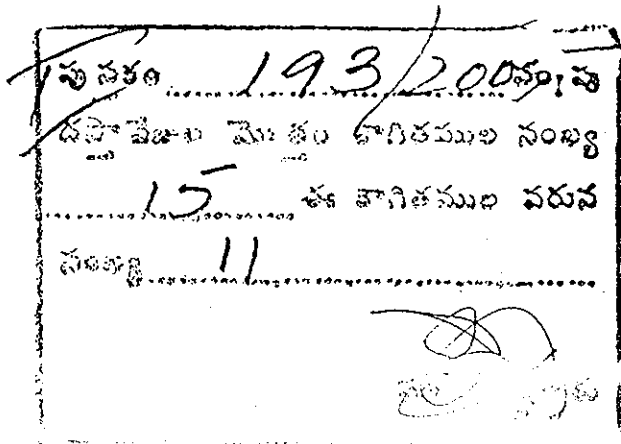 1 వ పుస్తకం 193/200 సం॥పు
దస్తావేజుల మొత్తం కాగితముల సంఖ్య
15 ఈ కాగితముల వరుస
సంఖ్య 11